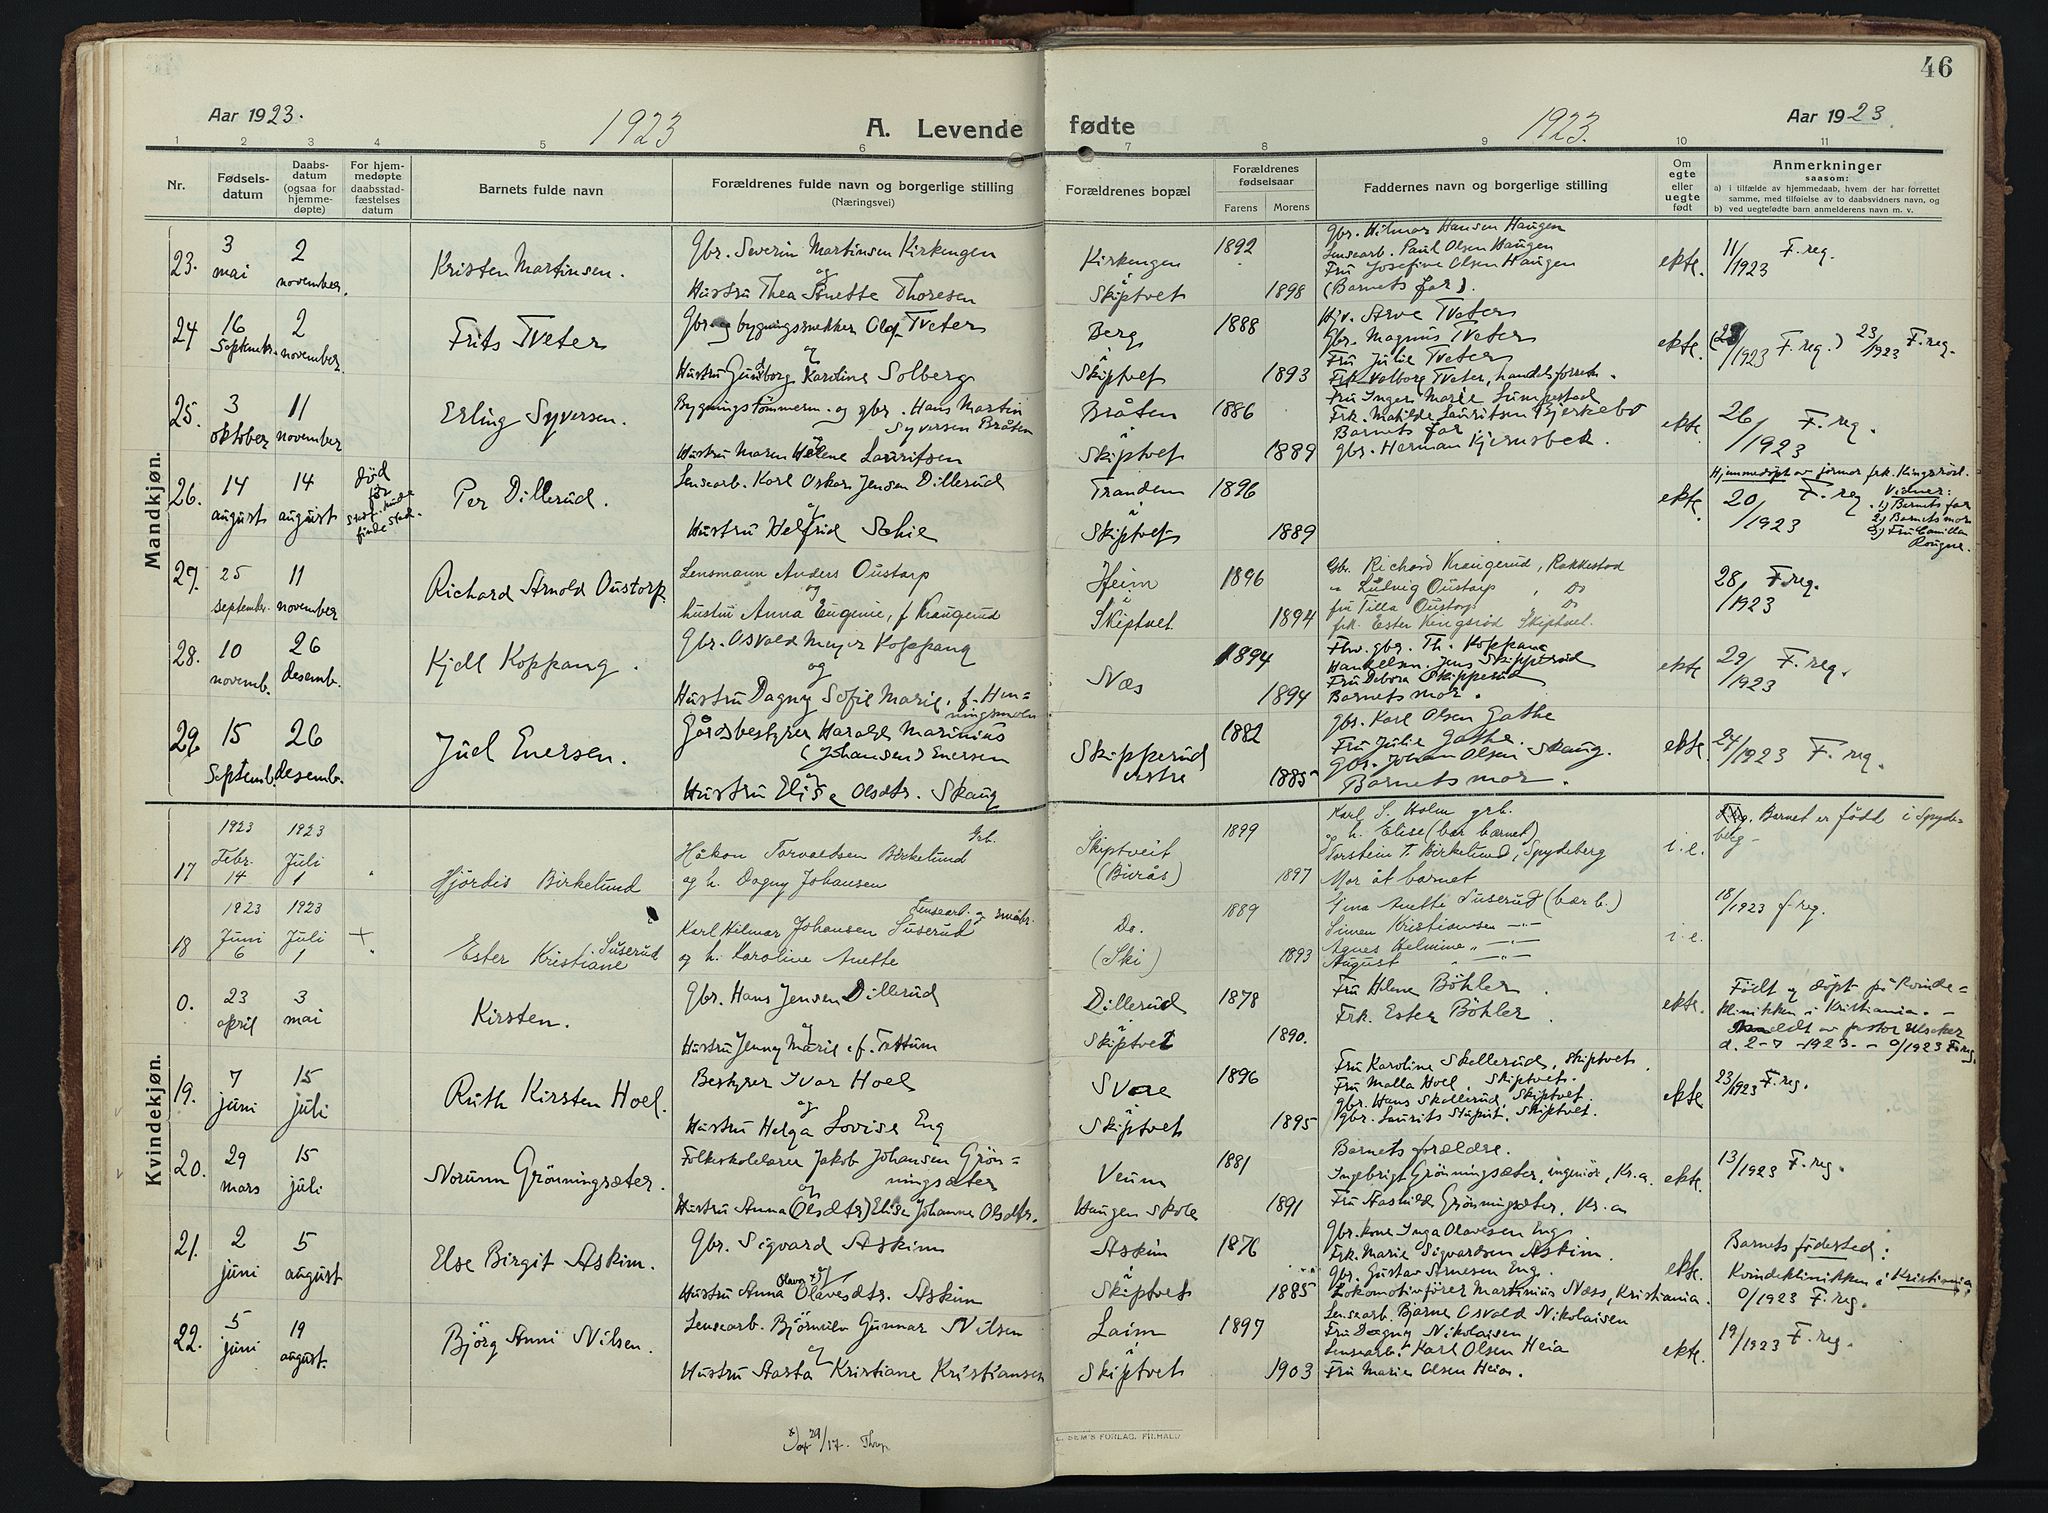 46
Aar 1923.
1923
A. Levende fødte
1923.
Aar 1923.
1 2 3 4 5 6 7 8 9 10 11
Nr.
Fødselsdatum
Daabsdatum (ogsaa for hjemmedøpte)
For hjemmedøpte daabsstadfæstelses datum
Barnets fulde navn
Forældrenes fulde navn og borgerlige stilling (Næringsvei)
Forældrenes bopæl
Forældrenes fødselsaar
Farens Morens
Faddernes navn og borgerlige stilling
Om egte eller uegte født
Anmerkninger
saasom:
a) i tilfælde av hjemmedaab, hvem der har forrettet samme, med tilføielse av to daabsvidners navn, og
b) ved uegtefødte barn anmelderens navn m. v.
Mandkjøn.
23. 3 mai 2 november. Kristen Martinsen.
Gbr. Severin Martinsen Kirkengen
og
Hustru Thea Anette Thoresen
Kirkengen i Skiptvet 1892 1898
Gbr. Hilmar Hansen Haugen
Lensearb. Paul Olsen Haugen
Fru Josefine Olsen Haugen
(Barnets far).
ekte. 11/1923 F. reg.
24 16 septembr. 2 november. Frits Tveter
Gbr. og bygningssnekker Olaf Tveter
og
Hustru Gunborg Karoline Solberg
Berg i Skiptvet 1888 1893
Arve Tveter
Gbr. Magnus Tveter
Fru Julie Tveter
Frk. Valborg Tveter, handelsforretn.
ekte. (23/1923 F. reg.) 23/1923 F. reg.
25. 3 oktober 11 november Erling Syversen.
Bygningstømmerm. og gbr. Hans Martin
Syversen Bråten
og
Hustru Maren Helene Lauritsen
Bråten i Skiptvet 1886 1889
Fru Inger Marie Sumpestad
Frk. Matilde Lauritsen Bjerkebo
Barnets far
Gbr. Herman Kjernsbek.
ekte. 26/1923 F. reg.
26. 14 august 14 august død før
Per Dillerud.
Lensearb. Karl Oskar Jensen Dillerud
og
Hustru Helfrid Sæhie
Trandem i Skiptvet 1896 1889
ekte.
Hjemmedøpt av jormor frk. Kingsrød.
20/1923 F. reg. Vidner:
1) Barnets far
2) Barnets mor
3) Fru Camilla Rougne.
27. 25 septembr. 11 november Richard Arnold Oustorp
Lensmann Anders Oustorp
og
hustru Anna Eugenie, f. Kraugerud
Heim i Skiptvet 1896 1894
Gbr. Richard Kraugerud, Rakkestad
" Ludvig Oustorp, Do
fru Tilla Oustorp Do
frk. Ester Kingsrød Skiptvet.
28/1923 F. reg.
28. 10 novemb. 26 desemb. Kjell Koppang.
Gbr. Osvald Meyer Koppang
og
Hustru Dagny Sofie Marie, f. Henningsmoen
Næs 1894 1894
Fhv. gbr. Th. Koppang
Handelsm. Jens Skipperud
Fru Debora Skipperud
Barnets mor.
ekte. 29/1923 F. reg.
29. 15 septemb. 26 desemb. Juel Enersen.
Gårdsbestyrer Harald Marinius
(Johansen) Enersen
og
Hustru Elise Olsdtr. Skaug
Skipperud vestre 1882 1885
Gbr. Karl Olsen Gathe
Fru Julie Gathe.
Gbr. Johan Olsen Skaug.
Barnets mor.
ekte. 24/1923 F. reg.
Kvindekjøn.
17 1923 Febr. 14 1923 Juli 1 " Hjördis Birkelund
Grb.
Håkon Torvaldsen Birkelund
og h. Dagny Johansen
Skiptveit (Burås) 1899 1897
Karl S. Holm grb.
og h. Elise (bar barnet)
Torstein T. Birkelund, Spydeberg
Mor åt barnet
i. e. Barnet er född i Spydeberg -
18 1923 Juni 6 1923 Juli 1 + Ester Kristiane Suserud
Lensearb. og småbr.
Karl Hilmar Johansen Suserud
og h. Karoline Anette
Do. (Ski) 1889 1893
Gina Anette Suserud (bær b.)
Simen Kristiansen -"-
Agnes Helmine " -"-
August " -"-
i. e. 18/1923 f. reg.
0. 23 april 3 mai Kirsten.
Gbr. Hans Jensen Dillerud
og
Hustru Jenny Marie f. Tettum
Dillerud i Skiptvet 1878 1890.
Fru Helene Böhler.
Frk. Ester Böhler.
ekte.
Födt og döpt på Kvindeklinikken i Kristiania. -
Meldt av pastor Ulsaker
d. 2-7-1923. - 0/1923 F. reg.
19. 7 juni 15 juli Ruth Kirsten Hoel.
Bestyrer Ivar Hoel
og
Hustru Helga Lovise Eng
Svae i Skiptvet 1896 1895
Fru Karoline Skellerud, Skiptvet.
Fru Malla Hoel, Skiptvet.
Gbr. Hans Skellerud, Skiptvet.
Gbr. Laurits Stupit, Skiptvet.
ekte 23/1923 F. reg.
20. 29 mars 15 juli Norunn Grönningsæter.
Folkeskolelærer Jakob Johansen Grönningsæter
og
Hustru Anna (Olsdtr) Elise Johanne Olsdtr.
Veum Haugen skole 1881 1891
Barnets forældre.
Ingebrigt Grönningsæter, ingeniör, Kr.a.
Fru Aashild Grönningsæter, Kr.a
ekte. 13/1923 F. reg.
21. 2 juni 5 august Else Birgit Askim.
Gbr. Sigvard Askim
og
Hustru Anna Olavesdtr. Askim
Askim i Skiptvet 1876 1885
Gbr. kone Inga Olavesen Eng
Frk. Marie Sigvardsen Askim.
Gbr. Gustav Arnesen Eng.
Lokomotivförer Martinius Næss, Kristiania.
ekte.
Barnets födested:
Kvindeklinikken i Kristiania
0/1923 F. reg.
22. 5 juni 19 august. Björg Anni Nilsen.
Lensearb. Björnulv Gunnar Nilsen
og
Hustru Aasta Kristiane Kristiansen
Laim i Skiptvet 1897 1903
Lensearb. Bjarne Osvald Nikolaisen
Fru Dagny Nikolaisen
Lensearb. Karl Olsen Heia
Fru Marie Olsen Heia.
ekte. 19/1923 F. reg.
SEM'S FORLAG, FR.HALD